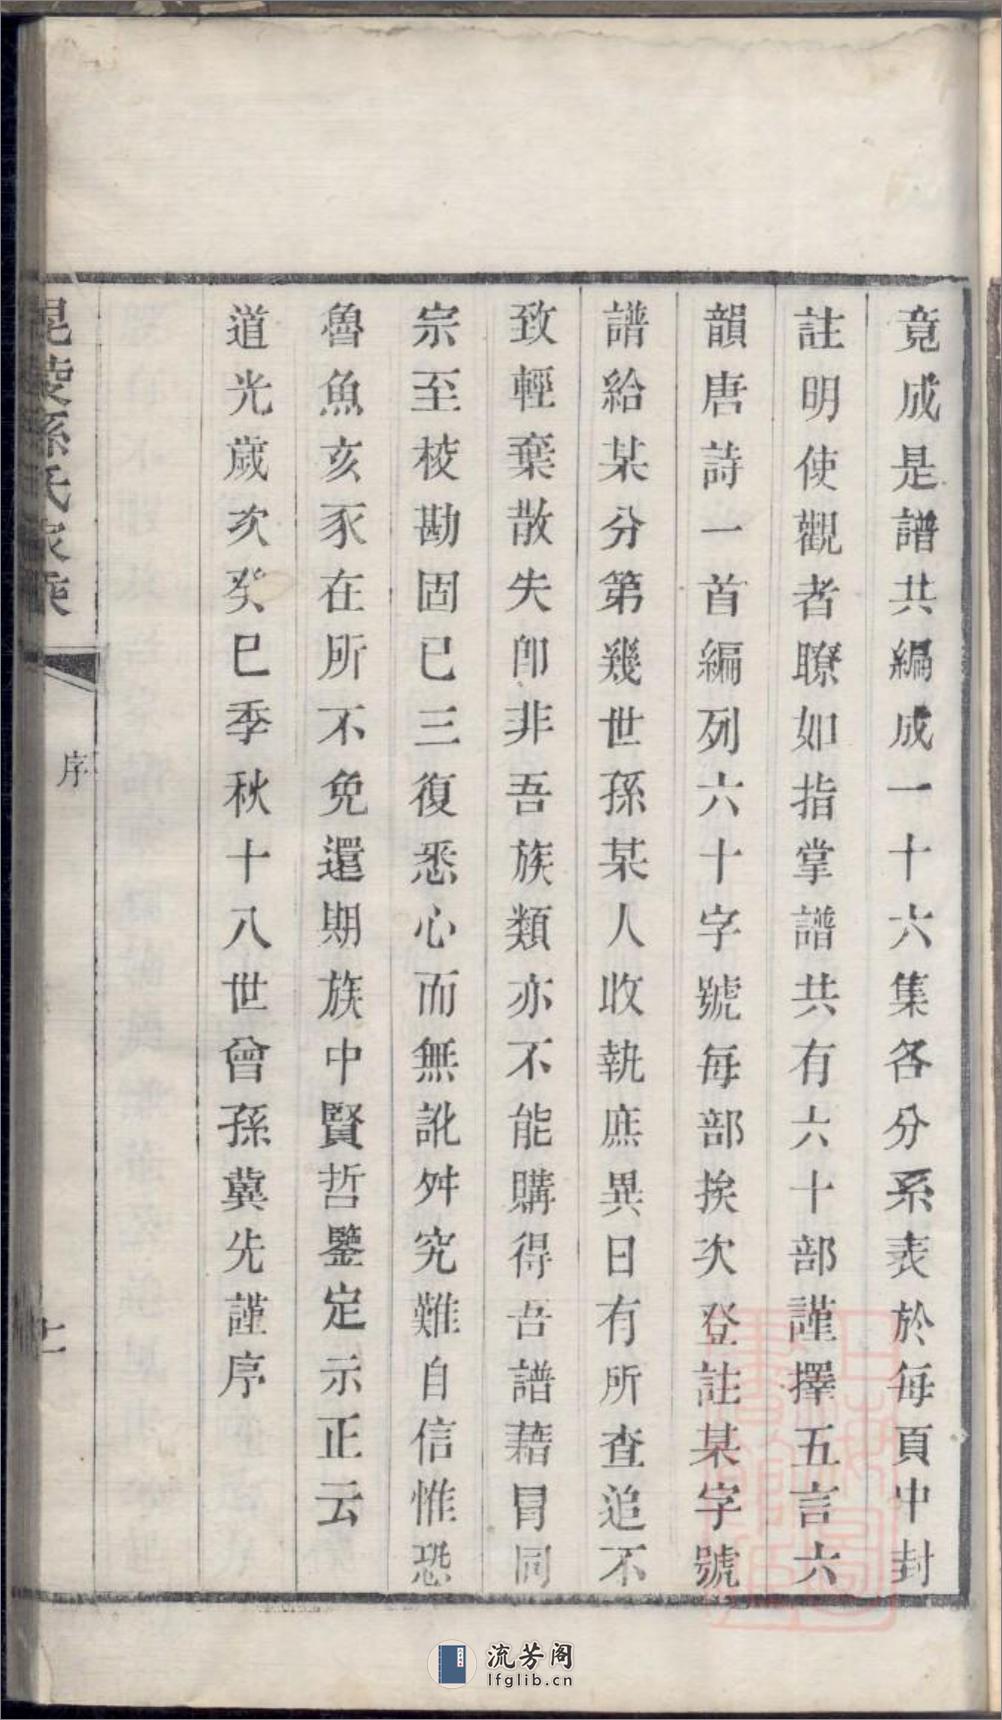 竟成是譜共編成一十六集各分系表於每頁中封
註明使觀者瞭如指掌譜共有六十部謹擇五言六
韻唐詩一首編列六十字號每部挨次登註某字號
譜給某分第幾世孫某人收執庶異日有所查追不
致輕棄散失卽非吾族類亦不能購得吾譜藉冒同
宗至校勘固已三復悉心而無訛舛究難自信惟恐
魯魚亥豕在所不免還期族中賢哲鑒定示正云
道光歲次癸巳季秋十八世曾孫冀先謹序
毘陵孫氏家乘
序
流芳阁
lfglib.cn